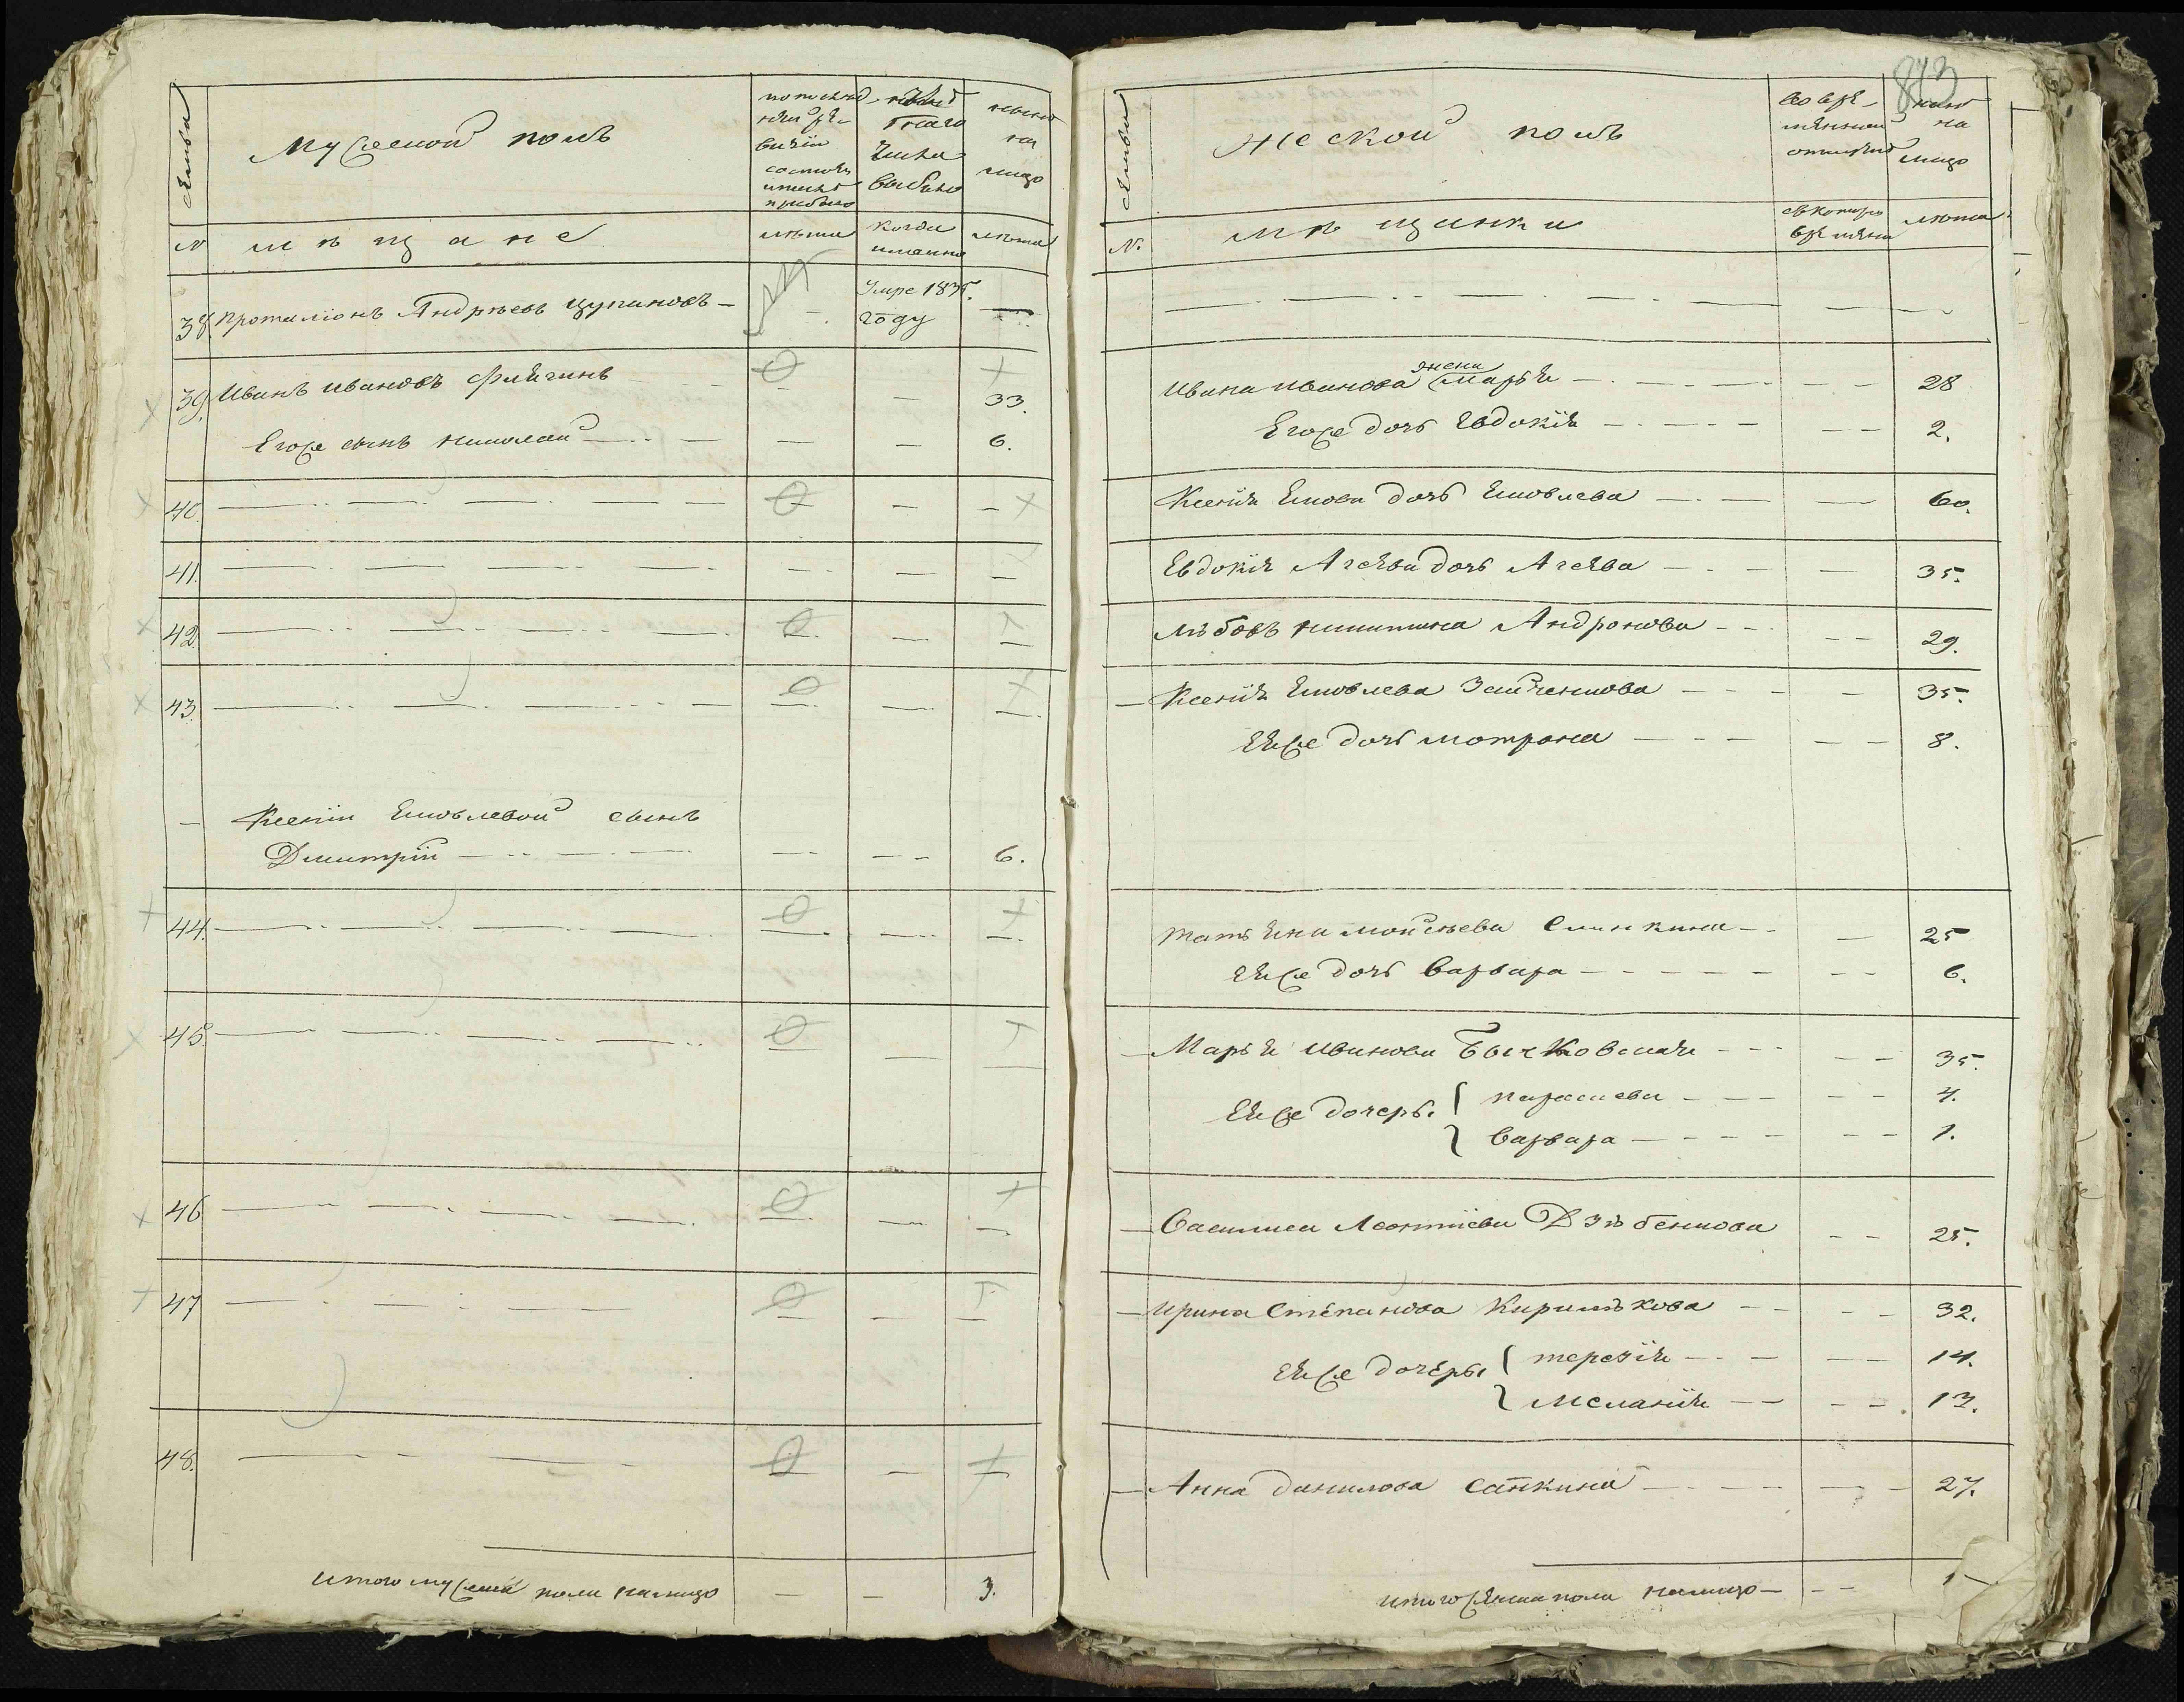 семьи
Мужеской полъ
по послѣд
ней ре
визіи
состояло
и послѣ
прибыло
изъ
того
числа
выбыло
нынѣ
на
лицо
N
мѣщане
лѣта
когда
именно
лѣта
38. Проталіонъ Андреевъ Цупиковъ —
Умре 183
году
39. Иванъ Ивановъ
33.
Егоже сынъ Николай
6.
40.
41.
42.
43.
Ксеніи Яковлевой сынъ
Дмитрій
6.
44.
45.
46.
47.
48.
Итого мужеска пола налицо
3.
843
семьи
Женской полъ
во вре-
менной
отлучкѣ
нынѣ
на
лицо
N.
мѣщанки
съ котораго
времени
лѣта
Ивана Иванова жена Марья
28
Егоже дочь Евдокія
2.
Ксенія Якова дочь Яковлева
60.
Евдокія Агеева дочь Агеева
35.
Любовь Никитина Андронова
29.
Ксенія Яковлева Зайченкова
35.
Еяже дочь Мотрона
8.
Татьяна Мойсеева
25
Еяже дочь Варвара
6.
Марья Иванова Бычковская
35.
Еяже дочери { Парасковья
4.
Варвара
1.
Василиса Леонтіева Дзюбенкова
25.
Ирина Степанова Кирилькова
32.
Еяже дочери { Терезія
14.
Меланія
13.
Анна Данилова Сапкина
27.
Итого женска пола налицо —